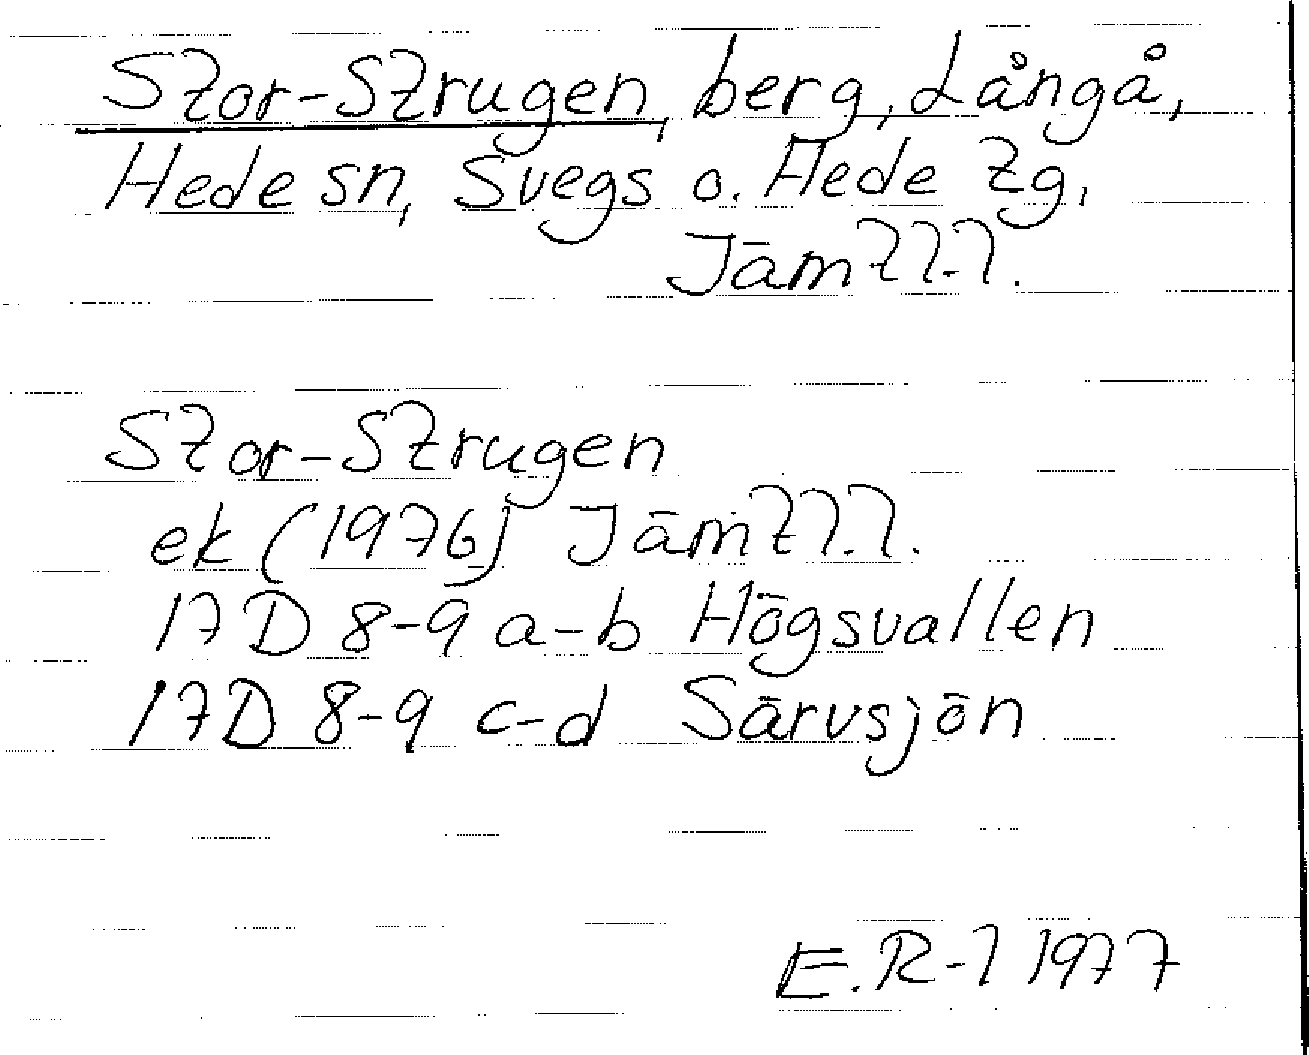 Stor-Strugen, berg, Långå,
Hede sn, Svegs o. Hede tg,
Jämtl.l.
Stor-Strugen
ek (1976) Jämtl.l.
17D 8-9 a-b Högsvallen
17D 8-9 c-d Särvsjön
E.R-l 1977